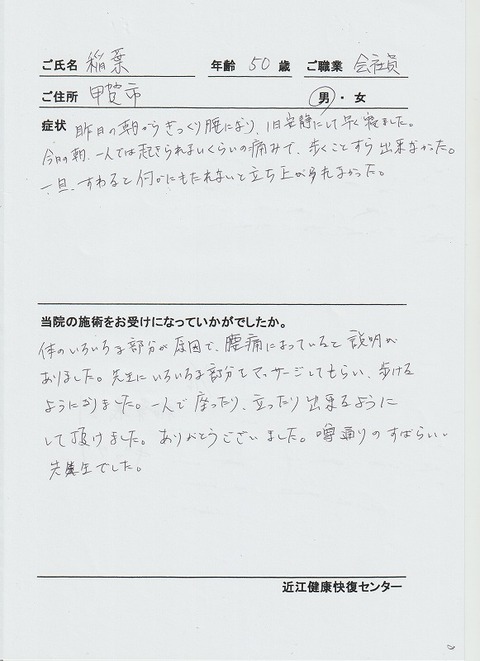 ご氏名 稲葉 年齢 50 歳 ご職業 会社員
ご住所 甲賀市 男・女
症状 昨日の朝からぎっくり腰になり、1日安静にして早く寝ました。
今日の朝、一人では起きられまいくらいの痛みで、歩くことすら出来なかった。
一旦、すわると何かにもたれないと立ち上がられなかった。
当院の施術をお受けになっていかがでしたか。
体のいろいろな部分が原因で、腰痛になっていると説明が
ありました。先生にいろいろな部分をマッサージしてもらい、歩ける
ようになりました。一人で座ったり、立ったり出来るように
して頂けました。ありがとうございました。噂通りのすばらしい
先生でした。
近江健康快復センター